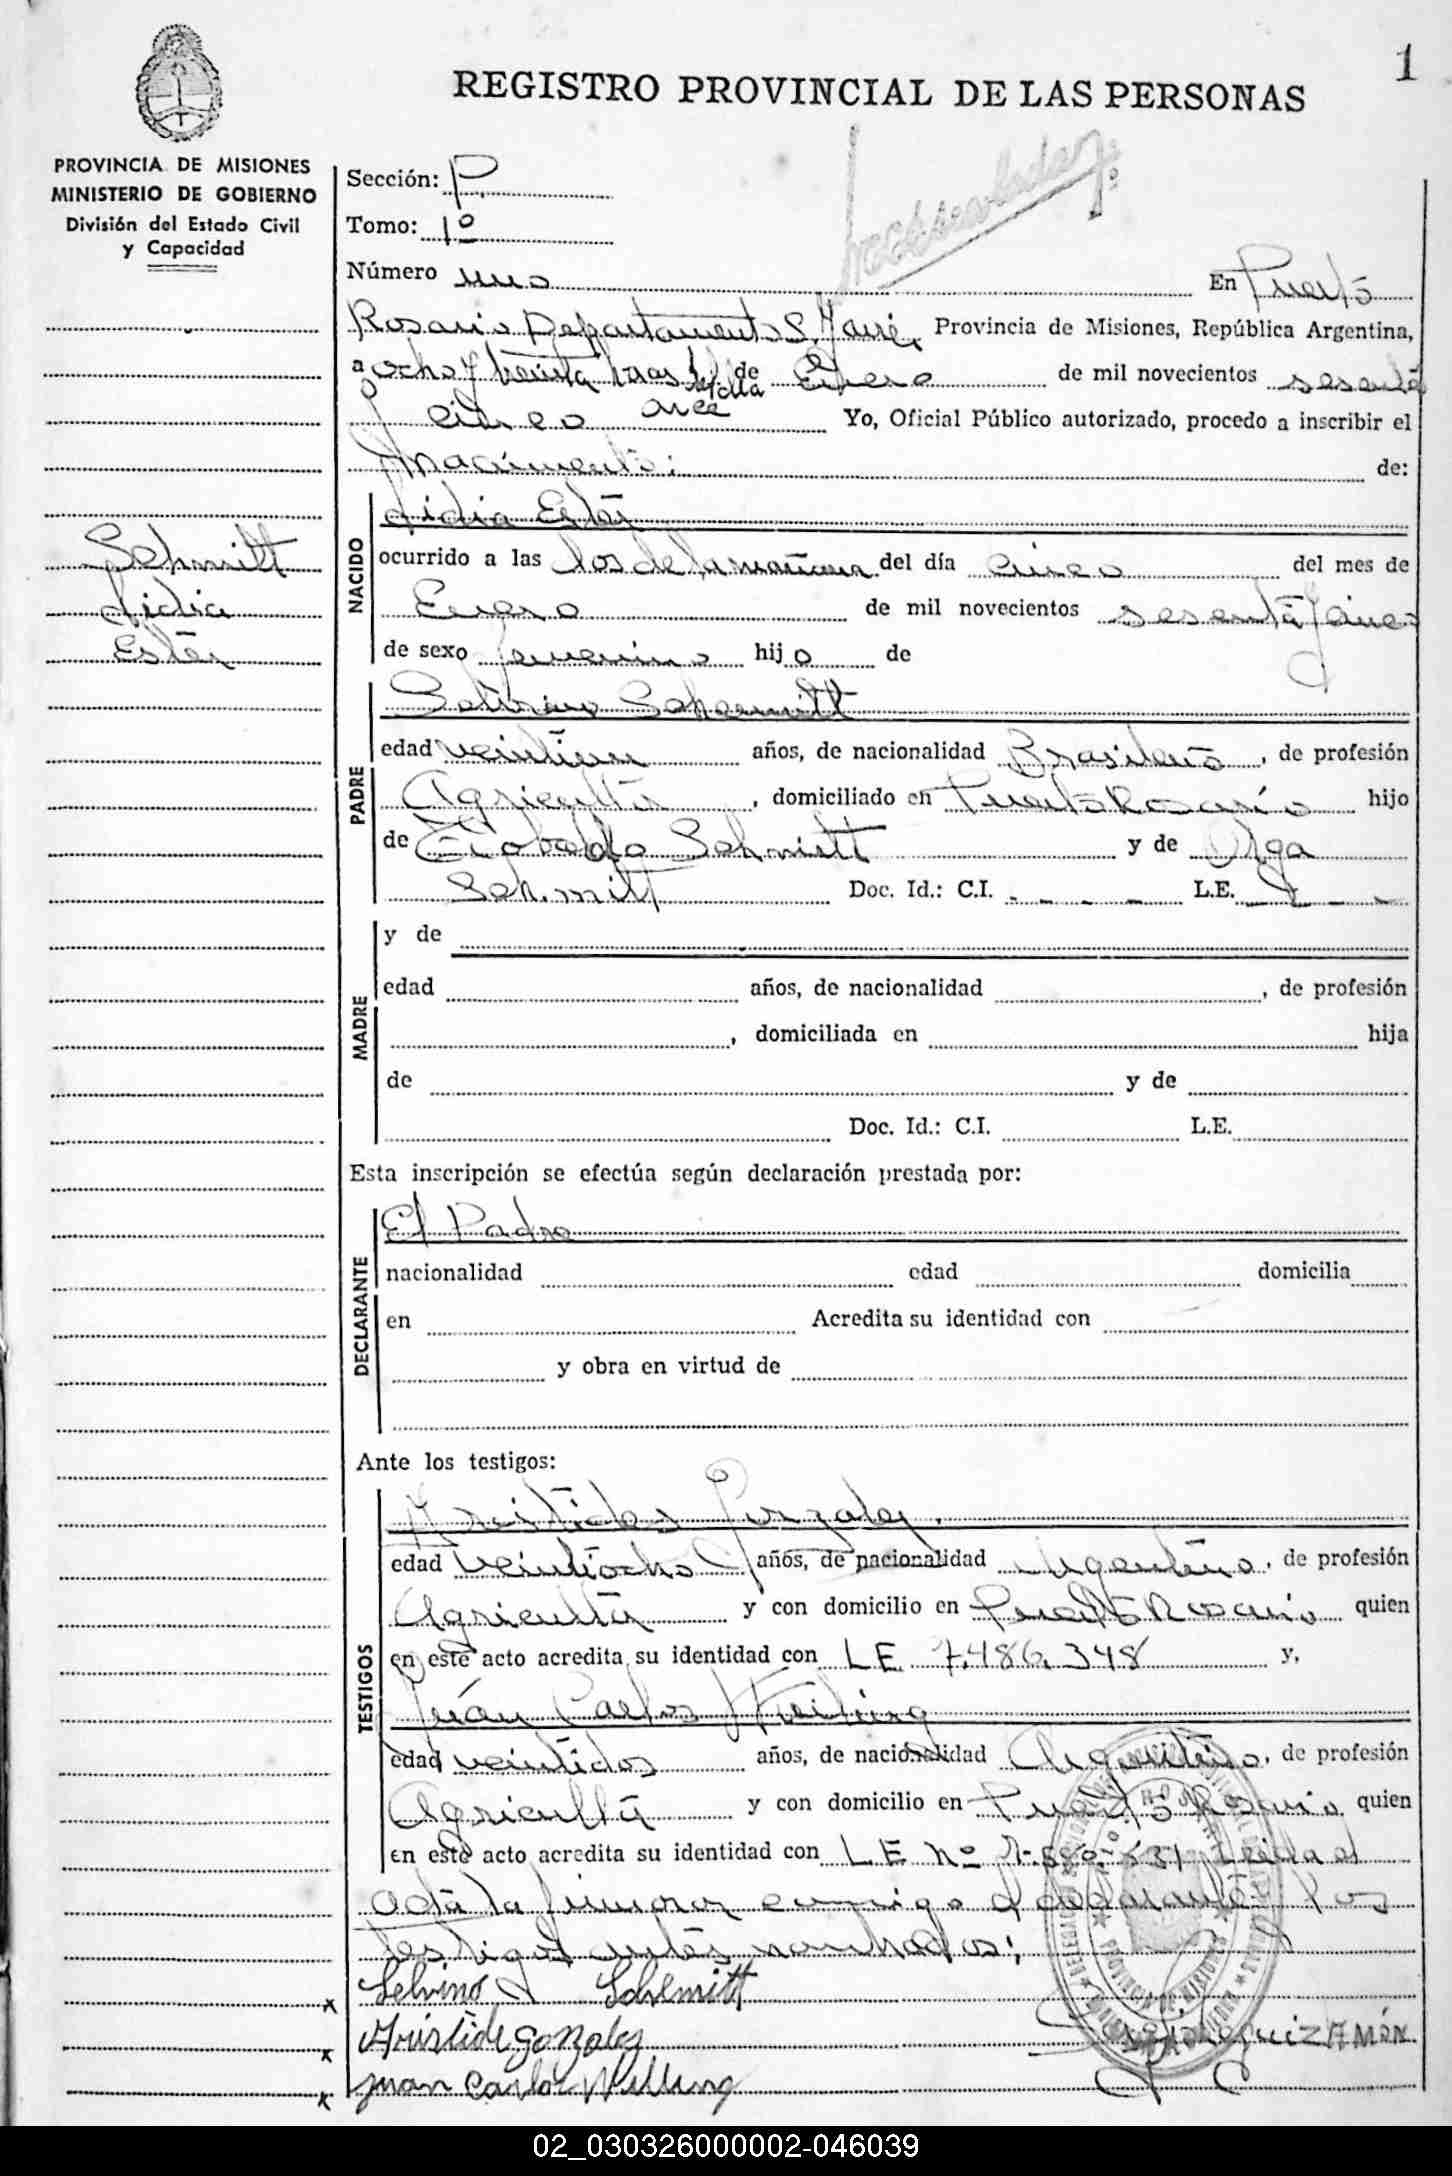 1
REGISTRO PROVINCIAL DE LAS PERSONAS
PROVINCIA DE MISIONES
MINISTERIO DE GOBIERNO
División del Estado Civil
y Capacidad
Sección: P
Tomo: 1º
Número uno En Puerto
Rosario Departamento S. Javier, Provincia de Misiones, República Argentina,
a ocho y treinta horas del día de Enero de mil novecientos sesenta
y cinco once Yo, Oficial Público autorizado, procedo a inscribir el
nacimiento: de:
Schmitt
Lidia
Ester
NACIDO
Lidia Ester
ocurrido a las dos de la mañana del día cinco del mes de
Enero de mil novecientos sesenta y cinco
de sexo femenino hijo de
PADRE
Schemitt
edad veintiun años, de nacionalidad Brasileño, de profesión
Agricultor, domiciliado en Puerto Rosario hijo
de Schmitt y de Olga
Schmitt Doc. Id.: C.I. - - - L.E. - -
MADRE
y de
edad años, de nacionalidad , de profesión
, domiciliada en hija
de y de
Doc. Id.: C.I. L.E.
Esta inscripción se efectúa según declaración prestada por:
DECLARANTE
El Padre
nacionalidad edad domicilia
en Acredita su identidad con
y obra en virtud de
Ante los testigos:
TESTIGOS
Aristides Gonzalez.
edad veintiocho años, de nacionalidad Argentino, de profesión
Agricultor y con domicilio en Puerto Rosario quien
en este acto acredita su identidad con LE 7.486.348 y,
Juán Carlos
edad veintidos años, de nacionalidad Argentino, de profesión
Agricultor y con domicilio en Puerto Rosario quien
en este acto acredita su identidad con LE Nº Leida el
acta la firmaron conmigo el declarante y los
testigos antes nombrados;
x Selvino Schemitt
x Aristide Gonzalez
x Juan Carlos Willing
PROVINCIA DE MISIONES
02_030326000002-046039